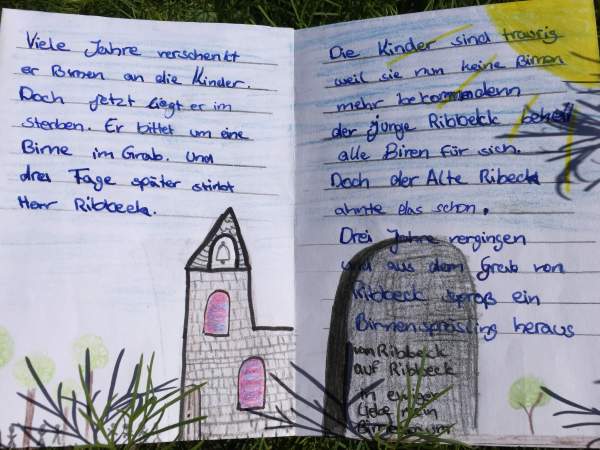 Viele Jahre verschenkt
er Birnen an die Kinder.
Doch jetzt liegt er im
sterben. Er bittet um eine
Birne im Grab. und
drei Tage später stirbt
Herr Ribbeck.
Die Kinder sind traurig
weil sie nun keine Birnen
mehr bekommen denn
der junge Ribbeck behell
alle Biren für sich.
Doch der Alte Ribeck
ahnte das schon.
Drei Jahre vergingen
und aus dem Grab von
Ribbeck sproß ein
Birnensprösling heraus
von Ribbeck
auf Ribbeck
in ewiger
Liebe mein